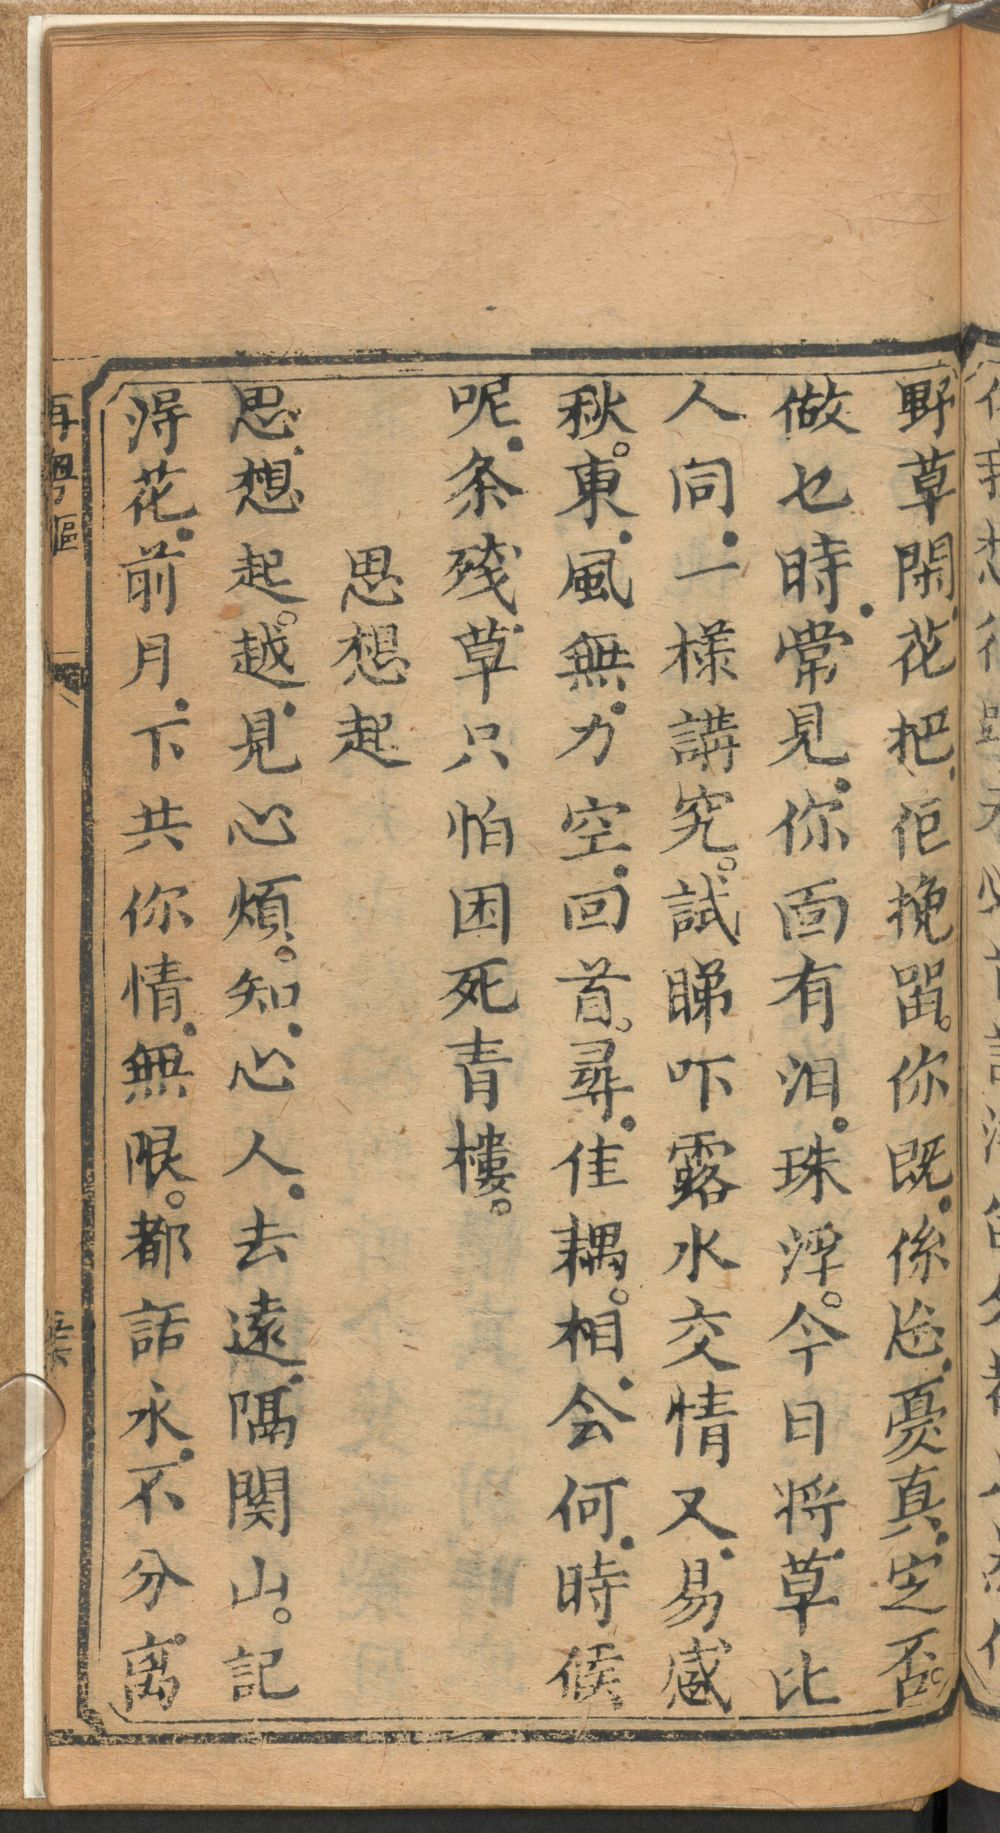 野草閑花把佢挽畱。你既係怂憂真定否。
做乜時常見你面有泪。珠浮。今日將草比
人同一樣講究。試睇吓露水交情又易感
秋。東風無力空回首。尋佳耦。相会何時候
呢条残草只怕困死青樓。
思想起
思想起。越見心煩。知心人去遠隔関山。記
淂花前月下共你情無限。都話永不分离
再粤謳